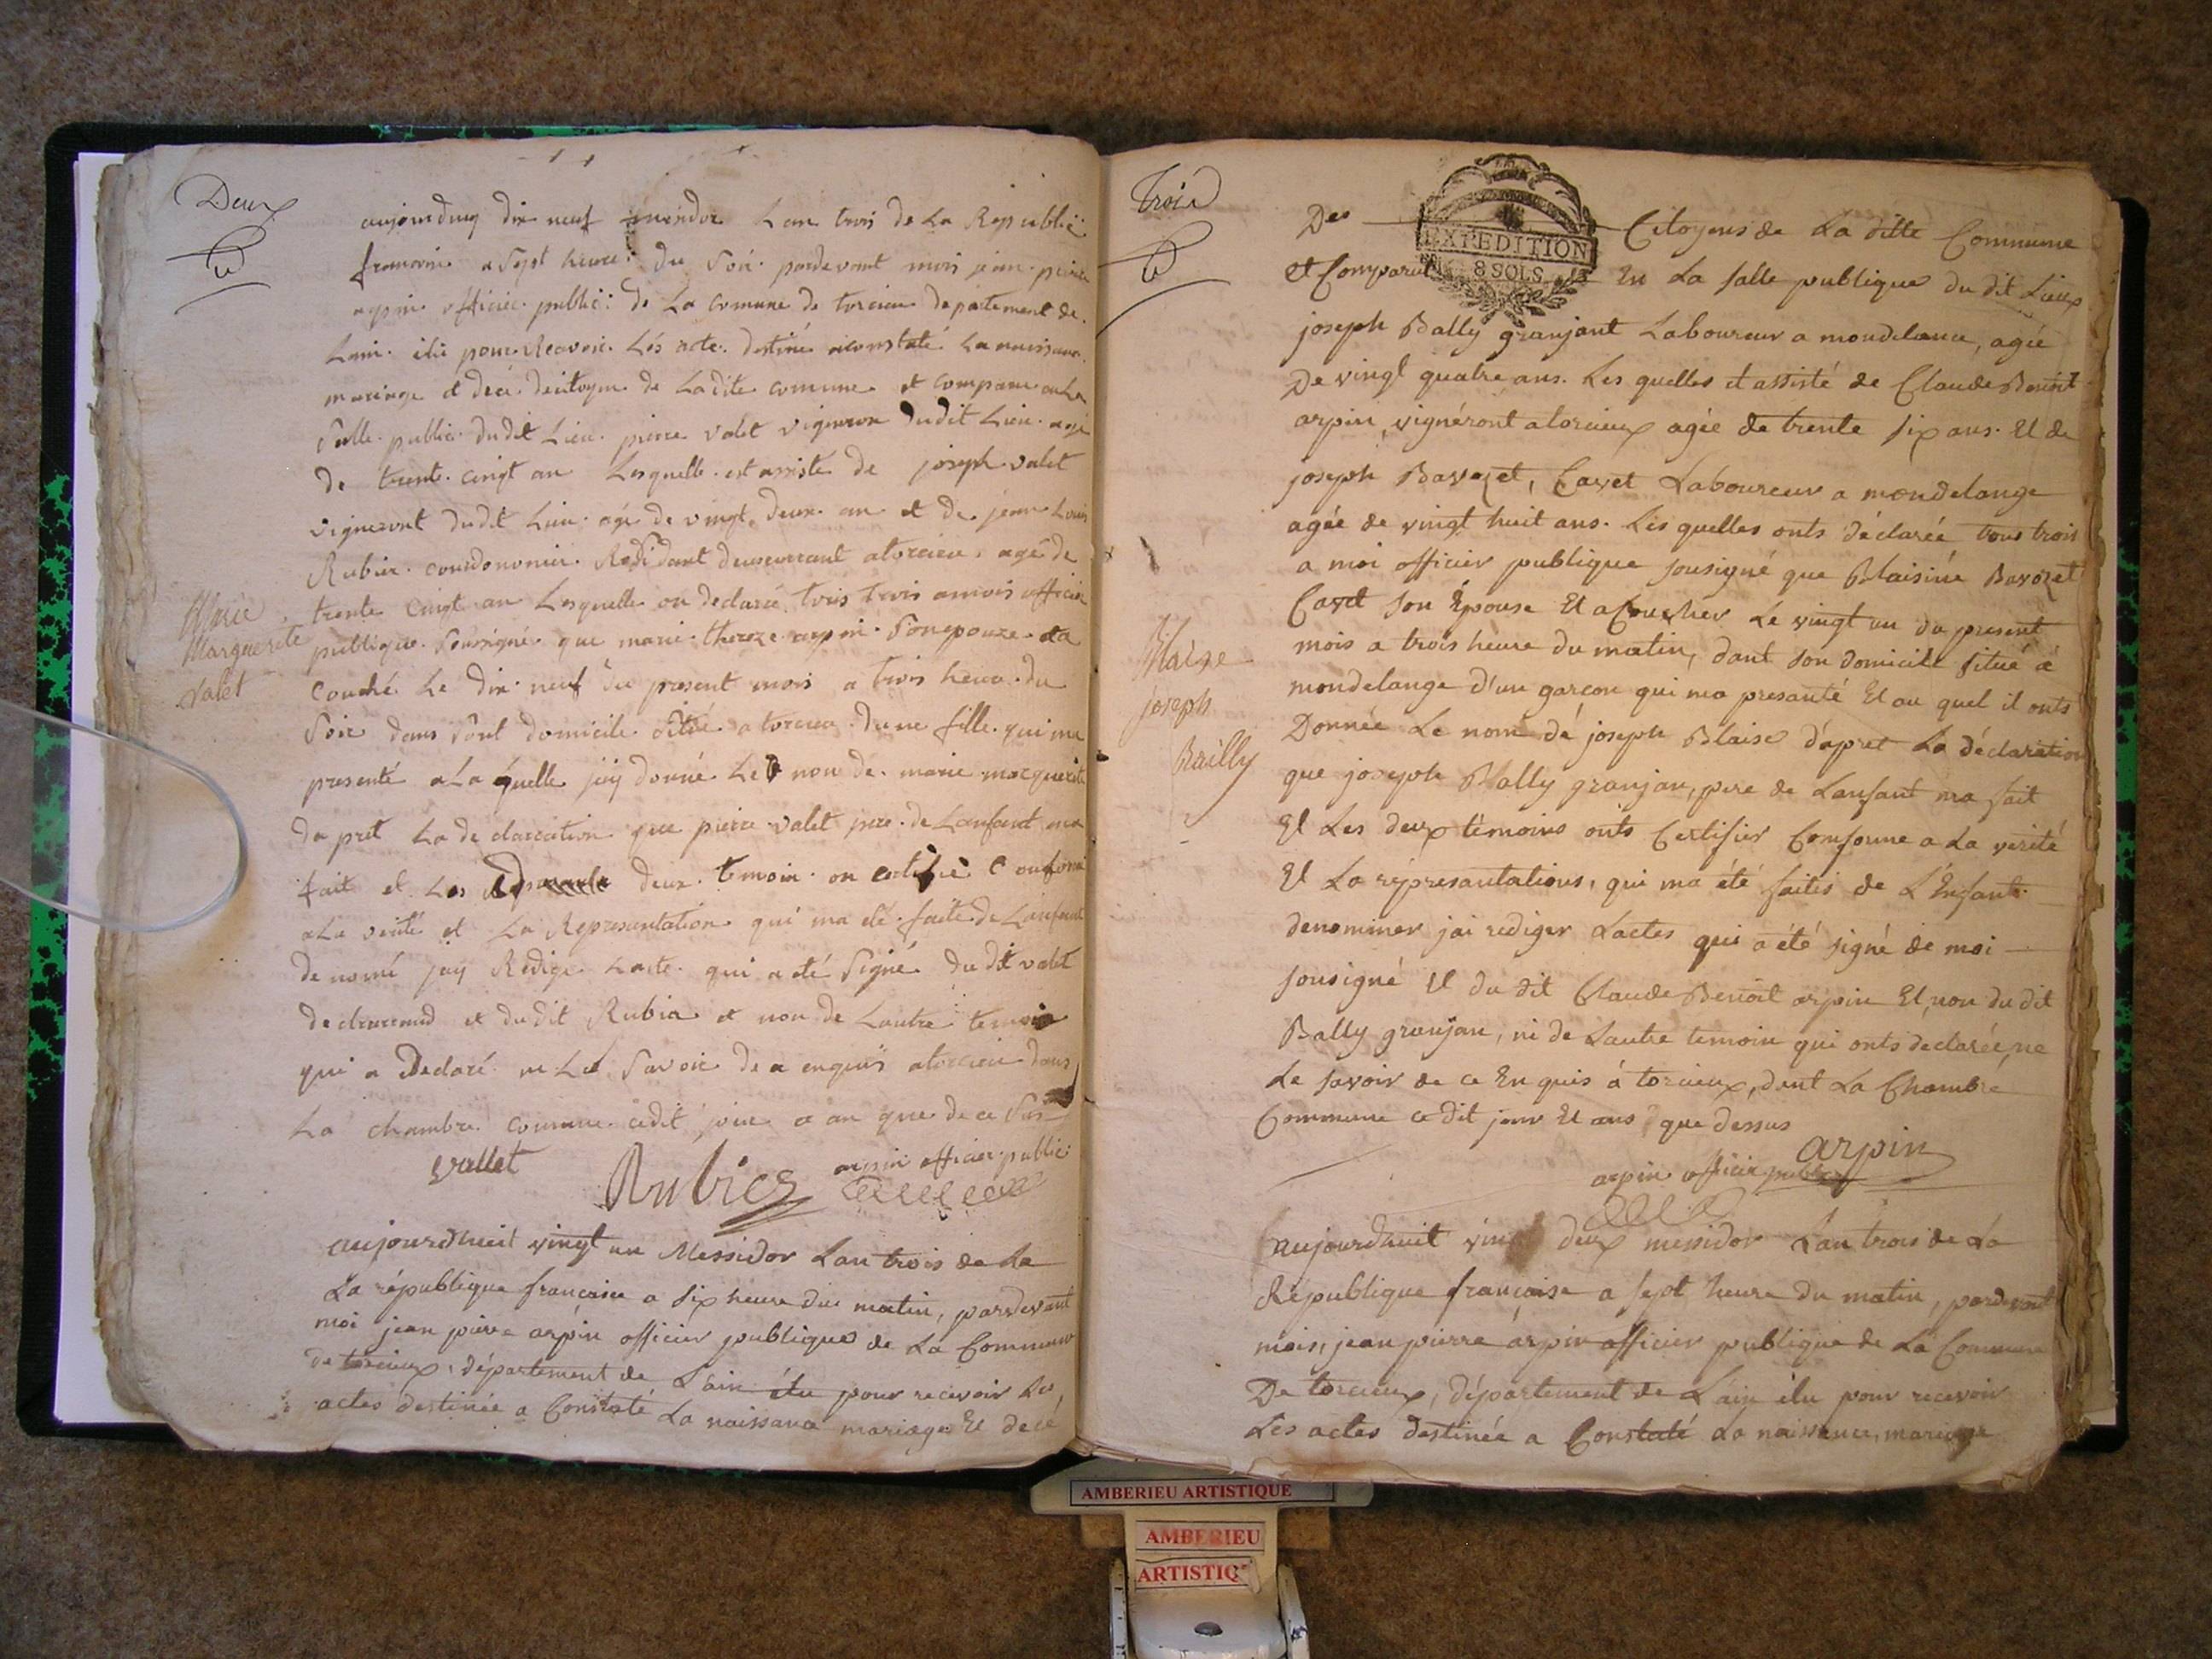 Deux
aujourduy dix neuf mesidor Lan trois de La Republi
francoise a Sept heure du Soir pardevant mois jean piere
arpin officier public de La comune de torcieu departement de
Lain élu pour Recevoir Lés acte destiné aconstaté La naissance
mariage et decé decitoyen de Ladite comune et comparu enLa
Salle public dudit Lieu pierre valet vigneron dudit Lieu agé
de trente cinqt an Lesquelle est assisté de joseph valet
vigneront dudit Lieu agé de vingt deux an et de jean Louis
Rubier Residant atorcieu agé de
trente cinqt an Lesquelle on declaré trois amois officier
publique Sousigné que marie thereze arpin Sonepouze ea
Couché Le dix neuf du present mois a trois heure du
Soir dans Sont domicile situé a torcieu dune fille qui ma
presenté aLa quelle jay donné Le non de marie marguerite
Marie
Marguerite
valet
da pret La de claration que pierre valet pere de Lenfant ma
fait et Les deux temoin on certifié Conforme
aLa verité et La Representation qui ma été faite de Lenfant
de nomé jay Redige Lacte qui a eté Signé du dit valet
et dudit Rubier et non de Lautre temoin
qui a Declaré ne Le Savoir de a enquis atorcieu dans
La chambre comune cedit jour a an que de ce Sus
vallet
Rubier
arpin officier public
aujourdhuit vingt un Messidor Lan trois de La
La république francoise a Six heure du matin, pardevant
moi jean pierre arpin officier publique de La Commune
de torcieux, département de L'ain élu pour recevoir Les
actes destinée a Constaté La naissance mariage Et decé
Trois
Des Citoyens de La ditte Commune
EXPEDITION
8 SOLS
et Comparut En La Salle publique du dit Lieux
joseph Bally granjant Laboureur a mondelance, agée
De vingt quatre ans. Les quelles et assisté de Claude Benoit
arpin, vignéront a torcieux agée de trente six ans. Et de
joseph Bavozet, Cavet Laboureur a mondelange
agée de vingt huit ans. Les quelles onts déclarée tous trois
a moi officier publique sousigné que Blaisine Bavozet
Cavet son Épouse Et acoucher Le vingt un du present
mois a trois heure du matin, dant son domicile situé a
mondelange d'un garçon qui ma presanté Et au quel il onts
Blaise
joseph
Bailly
Donnée Le nom dé joseph Blaise d'apret La déclaration
que joseph Bally granjan, pere de Lanfant ma fait
Et Les deux témoins onts Certifier Conforme a La verité
Et La représantations, qui ma été faites de L'Enfant
denommer jai rediger Lactes qui a été signé de moi
sousigné Et du dit Claude Benoit arpin Et non du dit
Bally granjan, ni de Lautre temoin qui onts declarée, ne
Le savoir de ce En quis á torcieux, dant La Chambre
Commune ce dit jour Et ans que dessus
arpin
arpin officier public
aujourdhuit vingt deux messidor L'an trois de La
République française a sept heure du matin, pardevant
mois, jean pierre arpin officier publique de La Commune
De torcieux, département de L'ain élu pour recevoir
Les actes destinée a Constaté La naissance, mariage
AMBERIEU ARTISTIQUE
AMBERIEU
ARTISTIQ